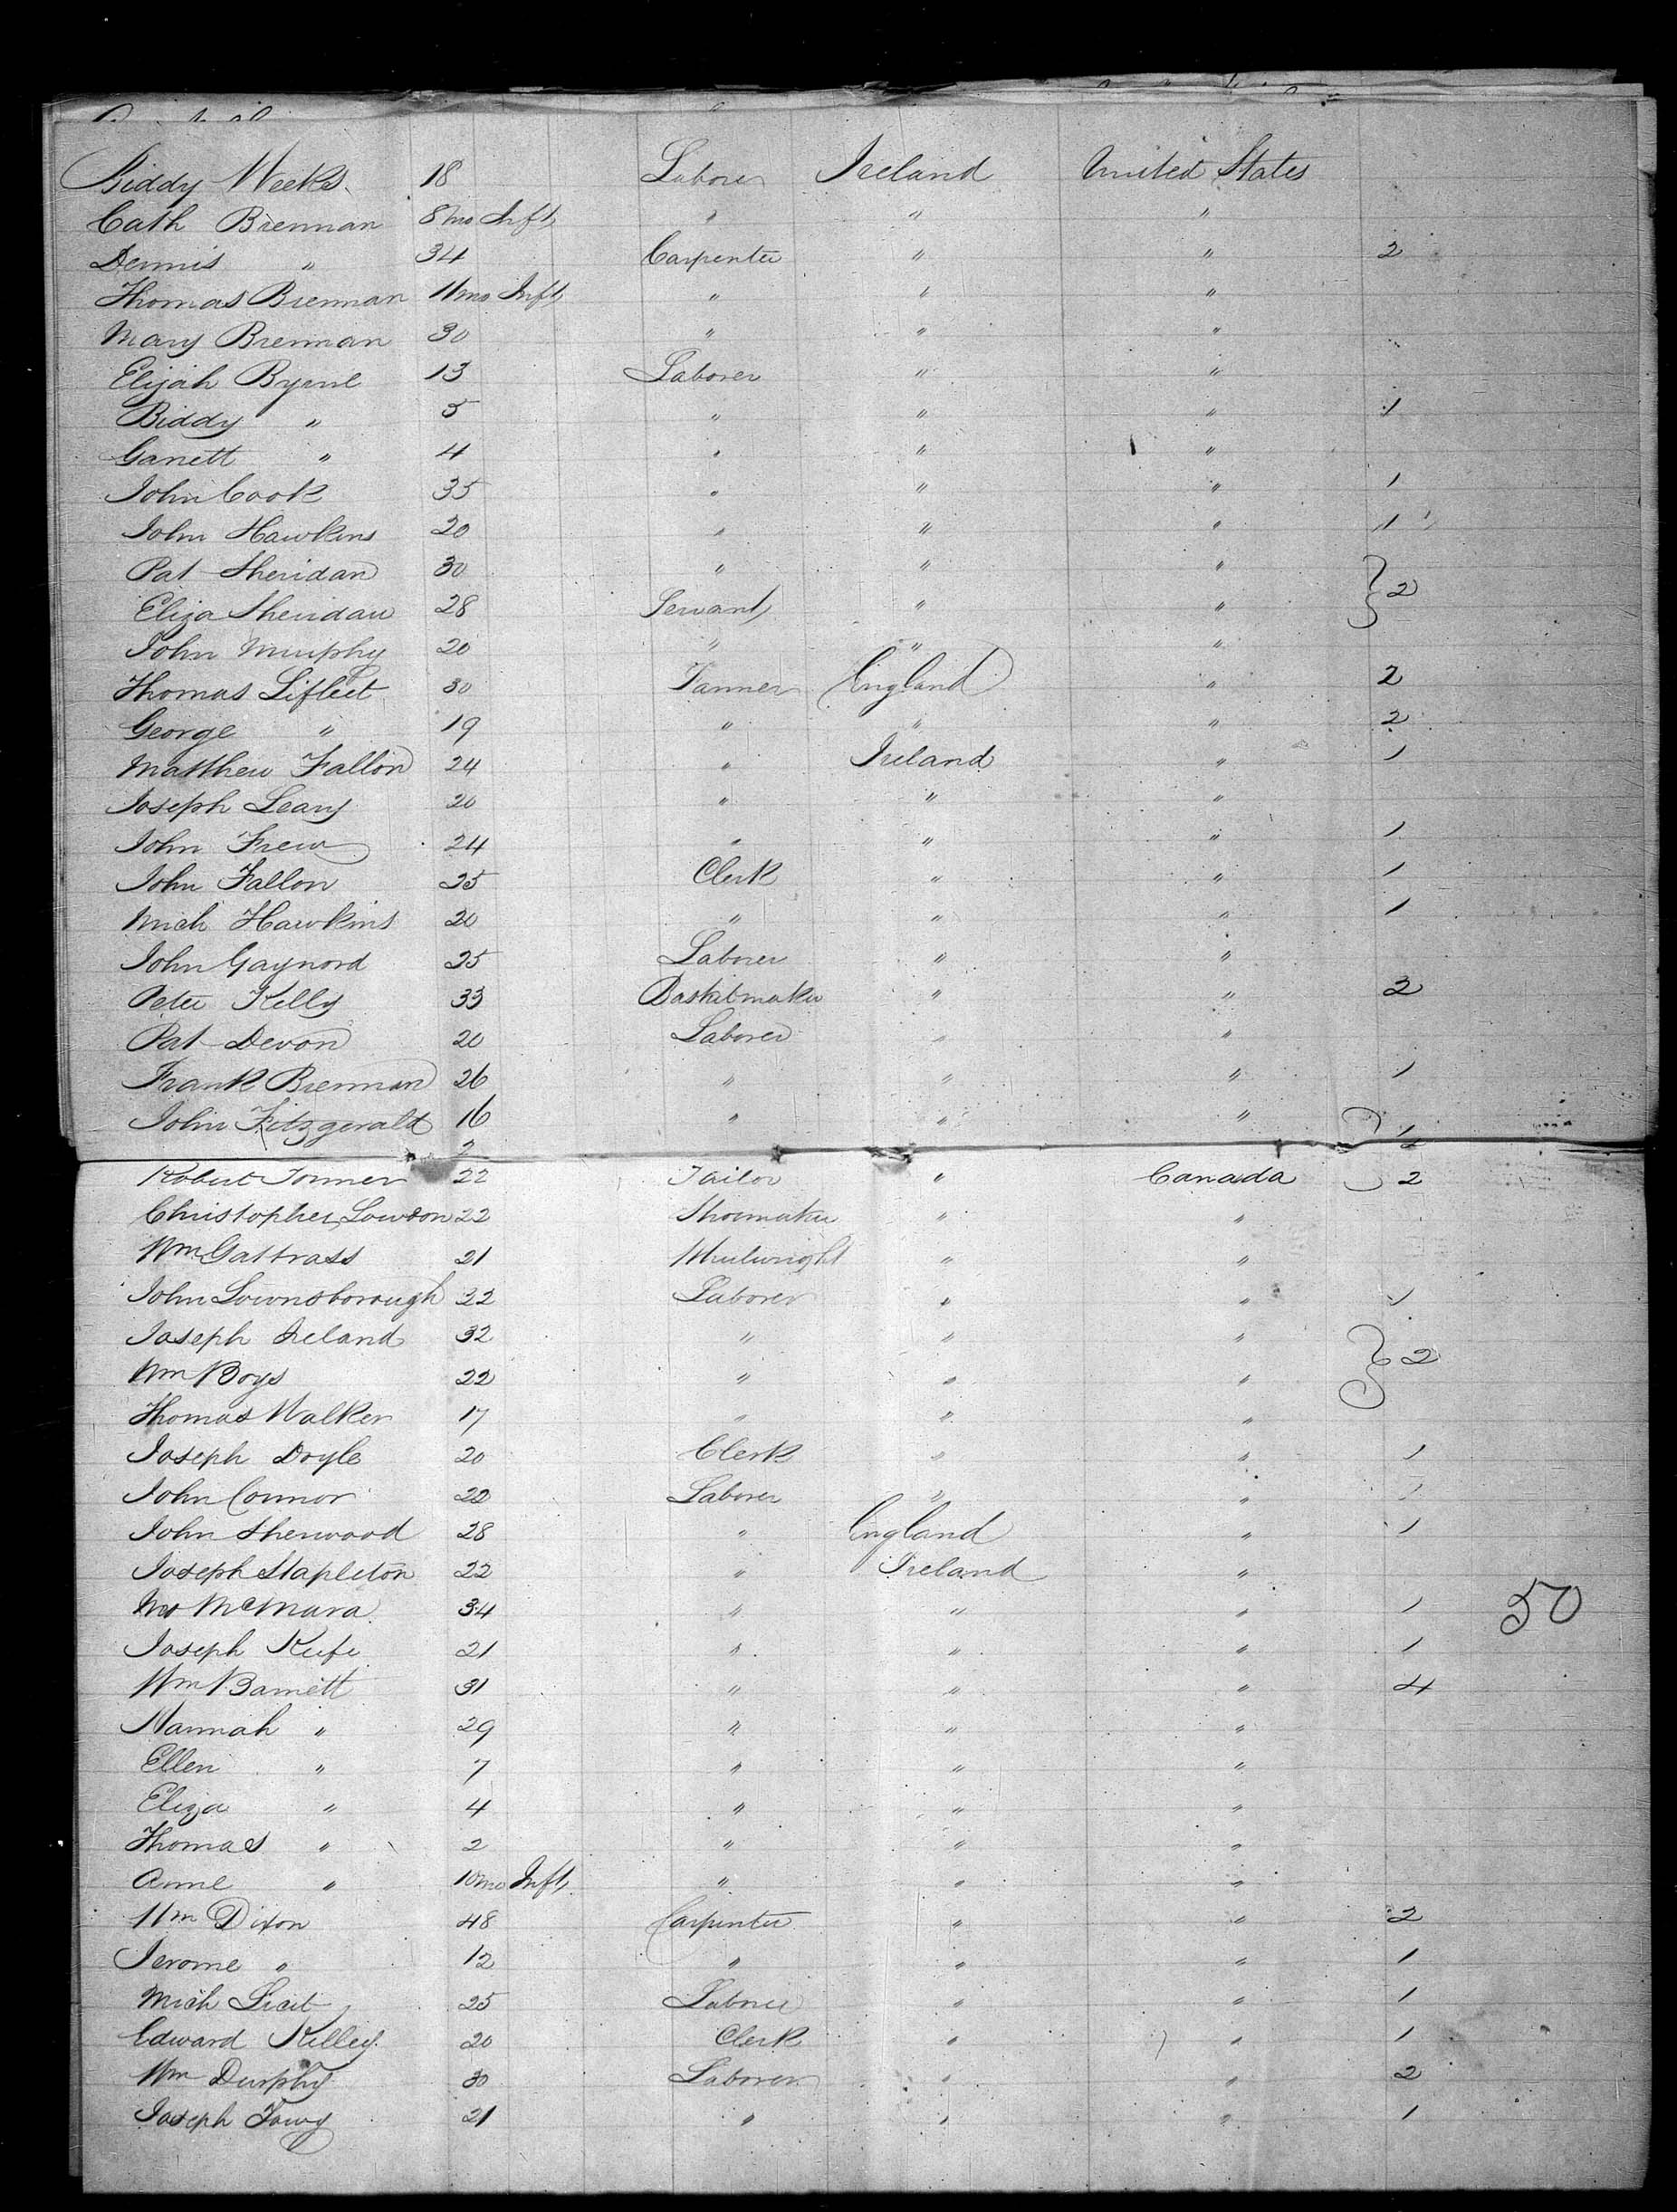 Biddy Weeks 18 Laborer Ireland United States
Cath Brennan 8 mo Inft " " "
Dennis " 34 Carpenter " " 2
Thomas Brennan 11 mo Inft " " "
Mary Brennan 30 " " "
Elijah Byrne 13 Laborer " "
Biddy " 5 " " " 1
Garrett " 4 " " "
John Cook 35 " " " 1
John Hawkins 20 " " " 1
Pat Sheridan 30 " " "
Eliza Sheridan 28 Servant " " 2
John Murphy 20 " " "
Thomas Lifleet 30 Tanner England " 2
George " 19 " " " 2
Matthew Fallon 24 " Ireland " 1
Joseph Leary 20 " " "
John Frew 24 " " " 1
John Fallon 25 Clerk " " 1
Mich Hawkins 20 " " " 1
John Gaynord 25 Laborer " "
Peter Kelly 33 Basketmaker " " 2
Pat Devon 20 Laborer " "
Frank Brennan 26 " " " 1
John Fitzgerald 16 " " " 1
2
Robert Tonner 22 Tailor " Canada 2
Christopher Lowson 22 Shoemaker " "
Wm Gattrass 21 Wheelwright " "
John Lownsborough 22 Laborer " " 1
Joseph Ireland 32 " " "
Wm Boys 22 " " " 2
Thomas Walker 17 " " "
Joseph Doyle 20 Clerk " " 1
John Connor 22 Laborer " " 1
John Sherwood 28 " England " 1
Joseph Stapleton 22 " Ireland "
McMara 34 " " " 1 50
Joseph Keefe 21 " " " 1
Wm Barnett 31 " " " 4
Hannah " 29 " " "
Ellen " 7 " " "
Eliza " 4 " " "
Thomas " 2 " " "
Anne " 10 mo Inft " " "
Wm Dixon 48 Carpenter " " 2
Jerome " 12 " " " 1
Mich 25 Laborer " " 1
Edward Killey 20 Clerk " " 1
Wm Durphy 30 Laborer " " 2
Joseph 21 " " " 1